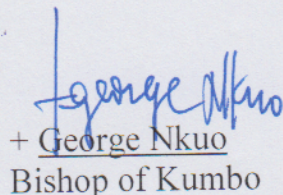 +george Nkuo
+ George Nkuo
Bishop of Kumbo